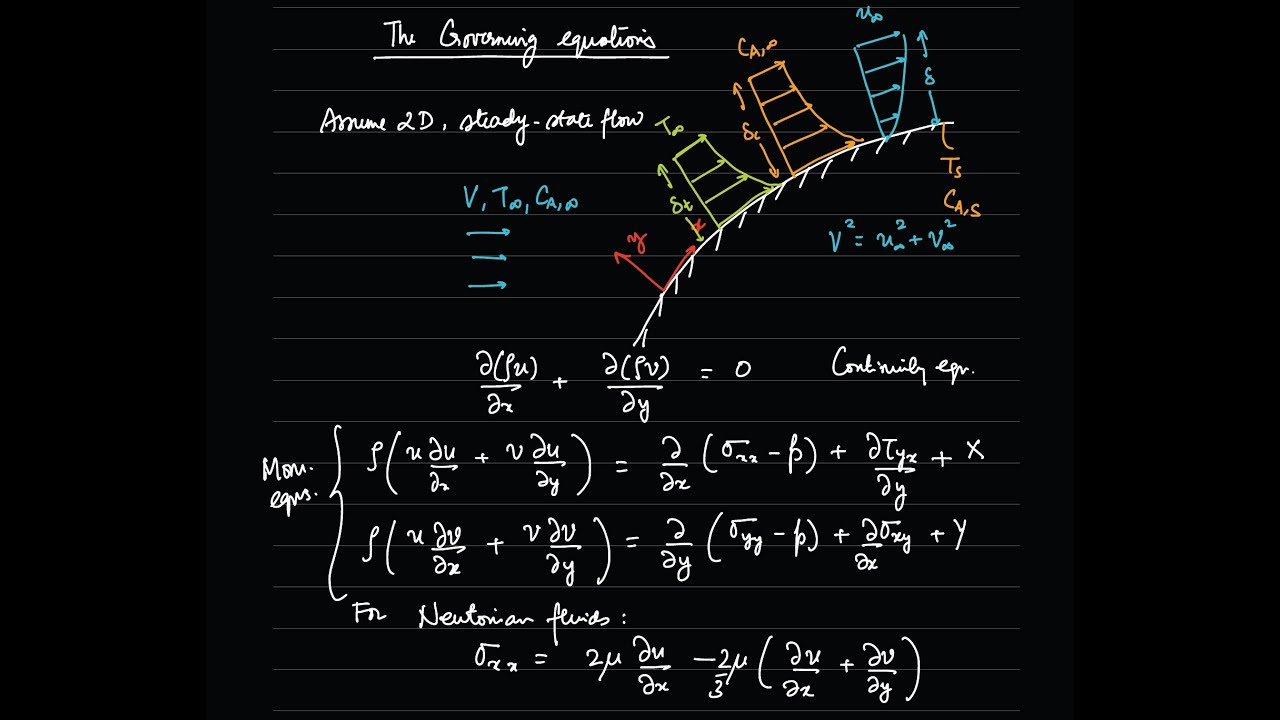 The Governing equations
Assume 2D, steady-state flow
u∞
δ
C_A,∞
δc
T∞
δt
T_s
C_A,s
V, T∞, C_A,∞
y
x
V² = u∞² + v∞²
∂(ρu)/∂x + ∂(ρv)/∂y = 0 Continuity eqn.
Mom. eqns.
ρ(u ∂u/∂x + v ∂u/∂y) = ∂/∂x (σ_xx - p) + ∂τ_yx/∂y + X
ρ(u ∂v/∂x + v ∂v/∂y) = ∂/∂y (σ_yy - p) + ∂σ_xy/∂x + Y
For Newtonian fluids:
σ_xx = 2μ ∂u/∂x - 2/3 μ (∂u/∂x + ∂v/∂y)